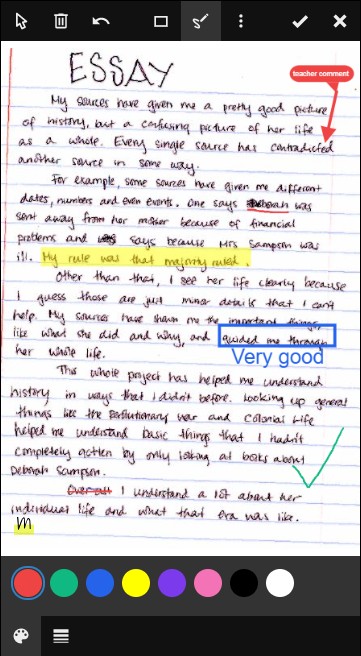 teacher comment
ESSAY
My sources have given me a pretty good picture
of history, but a confusing picture of her life
as a whole. Every single source has contradicted
another source in some way.
For example, some sources have given me different
dates, numbers and even events. One says Deborah was
sent away from her mother because of financial
problems and says because Mrs Sampson was
ill. My rule was that majority ruled.
Other than that, I see her life clearly because
I guess those are just minor details that I can't
help. My sources have shown me the important things,
like what she did and why, and guided me through
her whole life.
Very good
This whole project has helped me understand
history in ways that I didn't before. Looking up general
things like the Revolutionary War and Colonial Life
helped me understand basic things that I hadn't
completely gotten by only looking at books about
Deborah Sampson.
Over all I understand a lot about her
individual life and what that era was like.
m